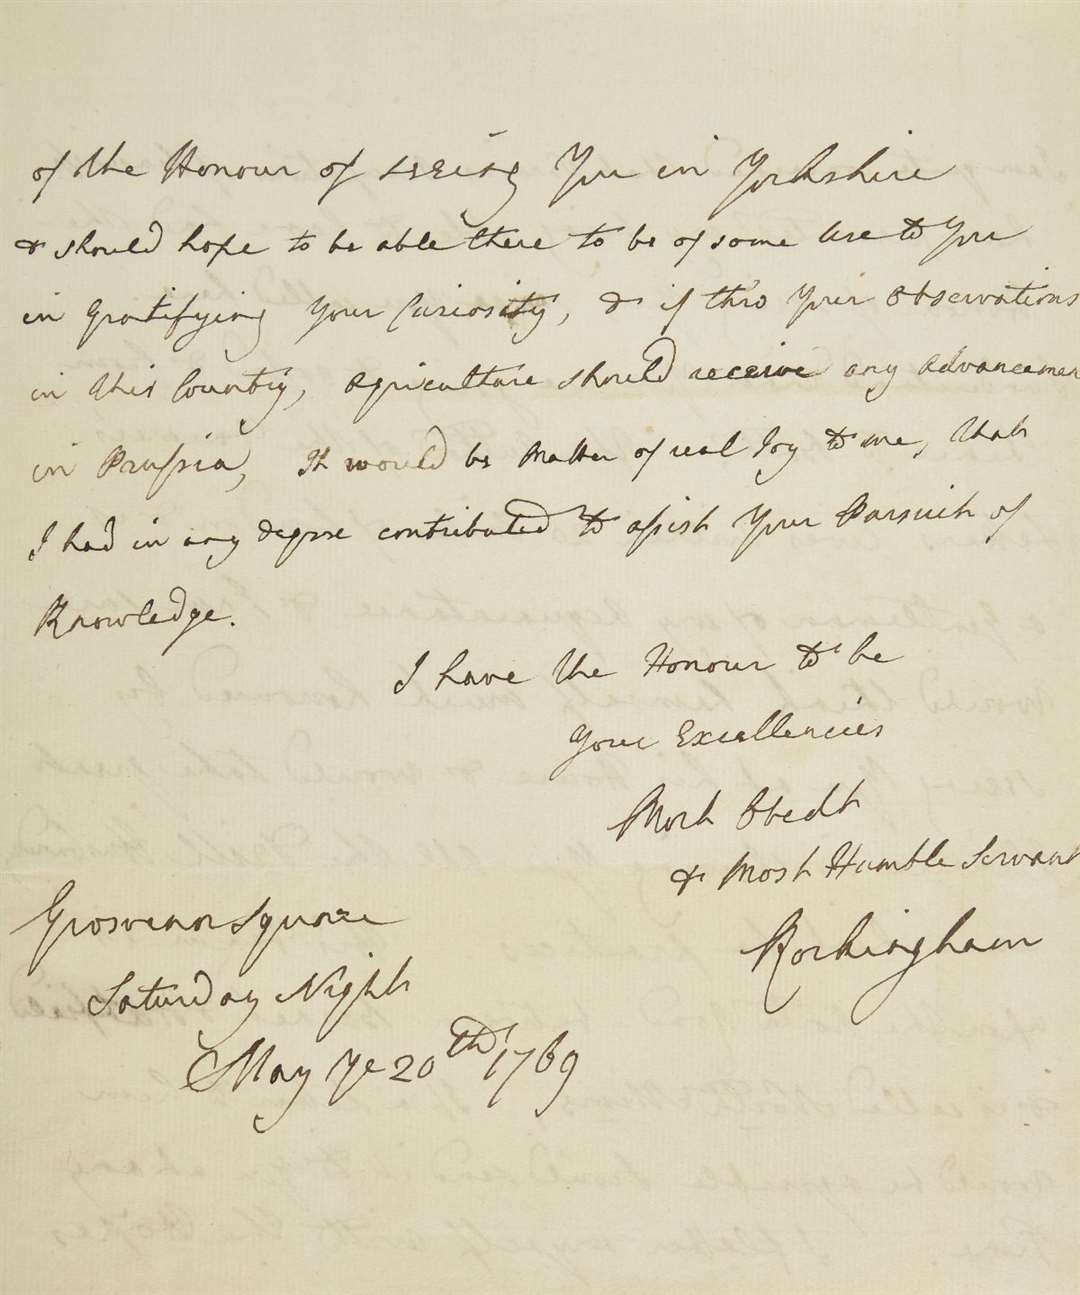 of the Honour of seeing You in Yorkshire
& should hope to be able there to be of some Use to You
in Gratifying Your Curiosity, & if thro Your Observations
in this Country, Agriculture should receive any Advancemen
in Prussia, It would be Matter of real Joy to me, that
I had in any degree contributed to assist Your Pursuit of
Knowledge.
I have the Honour to be
Your Excellencies
Most Obedt
& Most Humble Servant
Rockingham
Grosvenor Square
Saturday Night
May Ye 20th 1769